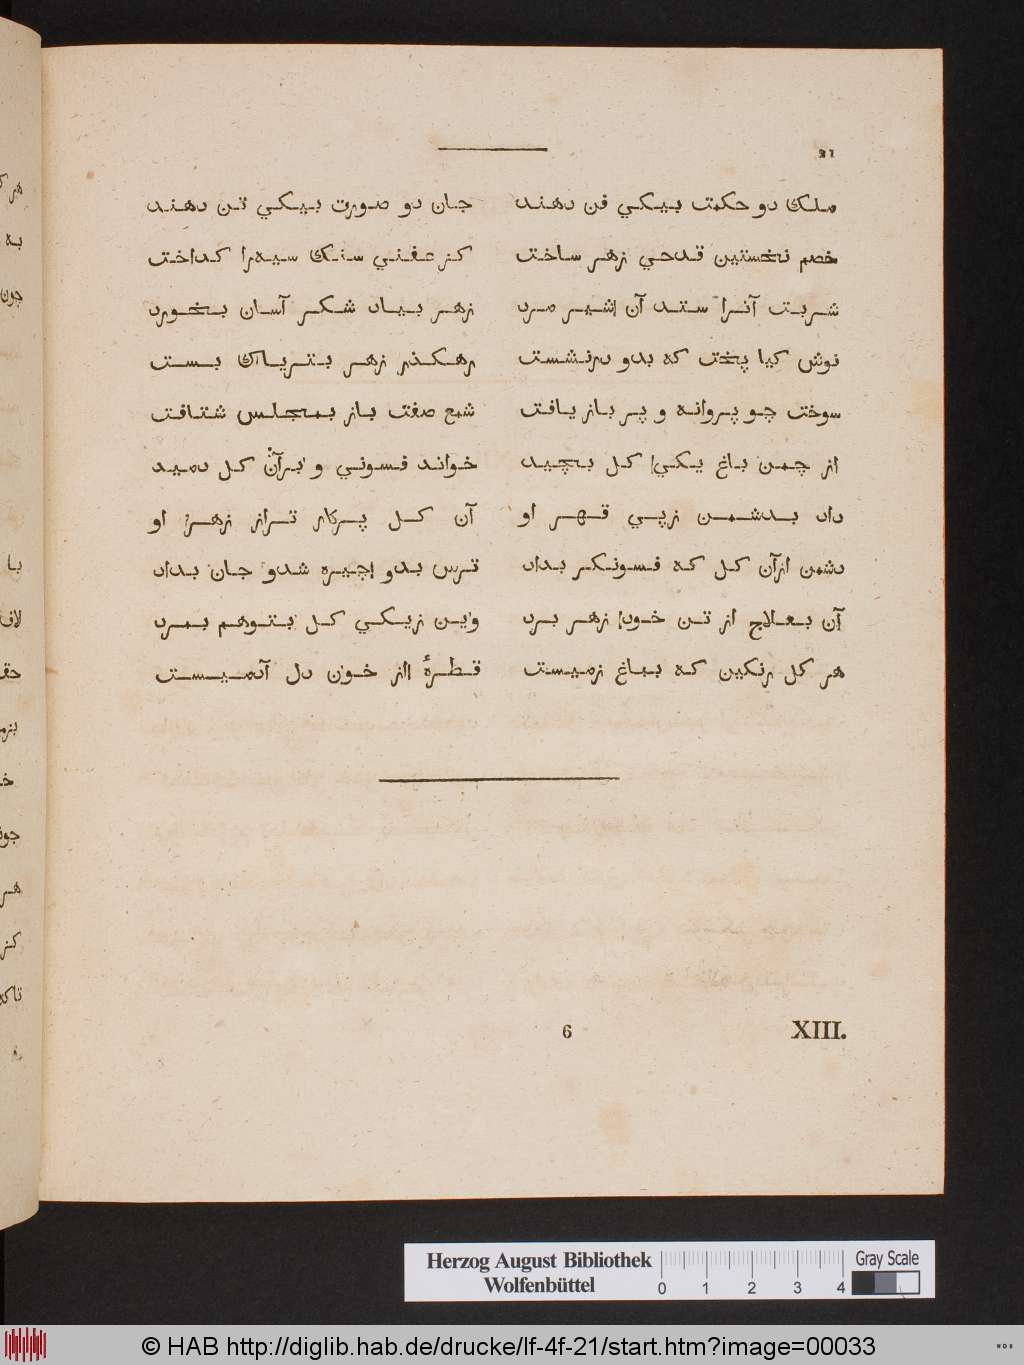 21
ملك دو حكمت بيكي فن دهند جان دو صورت بيكي تن دهند
خصم نخستين قدحي زهر ساخت كز عفني سنك سيه را كداخت
شربت آنرا ستد آن شير مرد زهر بياد شكر آسان بخورد
نوش كيا پخت كه بدو درنشست رهكذر زهر بترياك بست
سوخت چو پروانه و پر باز يافت شمع صفت باز بمجلس شتافت
از چمن باغ يكي كل بچيد خواند فسوني و برآن كل دميد
داد بدشمن زپي قهر او آن كل پركار تراز زهر او
دشمن ازآن كل كه فسونكر بداد ترس بدو چيره شدو جان بداد
آن بعلاج از تن خود زهر برد وين زيكي كل بتوهم بمرد
هر كل رنكين كه بباغ زميست قطرهٔ از خون دل آدميست
6 XIII.
Herzog August Bibliothek
Wolfenbüttel
0 1 2 3 4
Gray Scale
© HAB http://diglib.hab.de/drucke/lf-4f-21/start.htm?image=00033